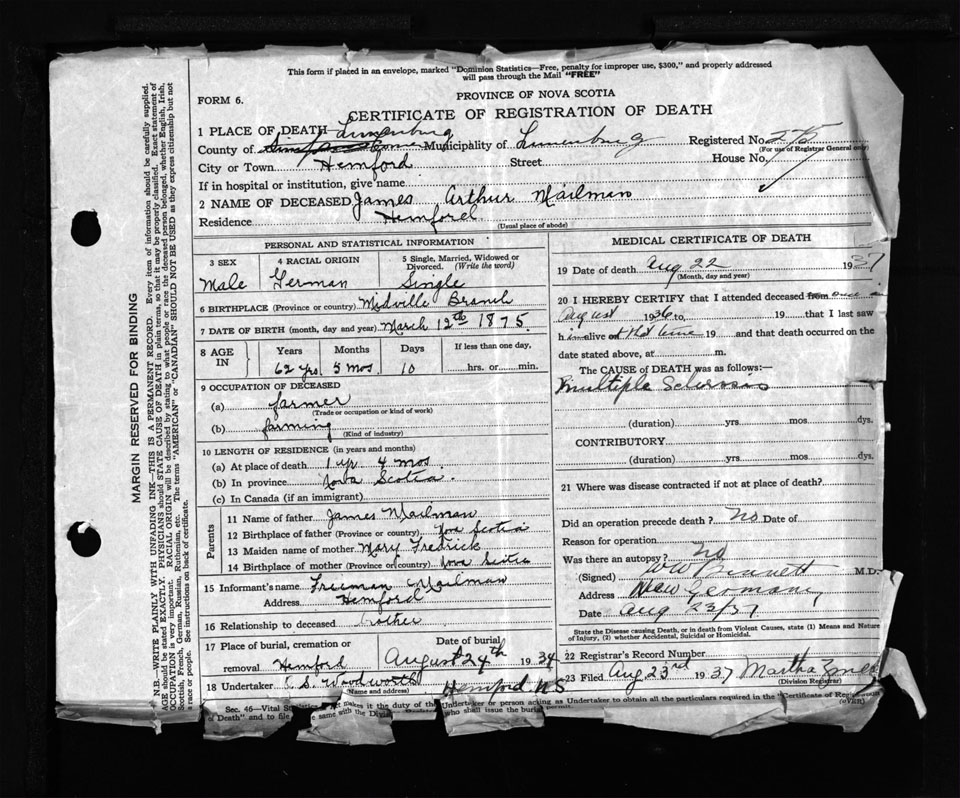 This form if placed in an envelope, marked "Dominion Statistics—Free, penalty for improper use, $300," and properly addressed
will pass through the Mail "FREE"
FORM 6.
PROVINCE OF NOVA SCOTIA
CERTIFICATE OF REGISTRATION OF DEATH
1 PLACE OF DEATH Lunenburg
County of Municipality of Lunenburg Registered No.
(For use of Registrar General only)
City or Town Hemford Street House No.
If in hospital or institution, give name
2 NAME OF DECEASED James Arthur Mailman
Residence Hemford
(Usual place of abode)
PERSONAL AND STATISTICAL INFORMATION
3 SEX 4 RACIAL ORIGIN 5 Single, Married, Widowed or Divorced. (Write the word)
Male German Single
6 BIRTHPLACE (Province or country) Midville Branch
7 DATE OF BIRTH (month, day and year) March 12th 1875.
8 AGE IN Years Months Days If less than one day,
62 yrs 5 mos. 10 hrs. or min.
9 OCCUPATION OF DECEASED
(a) farmer
(Trade or occupation or kind of work)
(b) farming
(Kind of industry)
10 LENGTH OF RESIDENCE (in years and months)
(a) At place of death 1 yr 4 mos.
(b) In province Nova Scotia.
(c) In Canada (if an immigrant)
Parents
11 Name of father James Mailman
12 Birthplace of father (Province or country) Nova Scotia
13 Maiden name of mother Mary Fredrick
14 Birthplace of mother (Province or country) Nova Scotia
15 Informant's name Freeman Mailman
Address Hemford
16 Relationship to deceased brother
17 Place of burial, cremation or removal Hemford
Date of burial August 24th 193
18 Undertaker C. S. Woodworth Hemford N.S
(Name and address)
MEDICAL CERTIFICATE OF DEATH
19 Date of death Aug 22 1937
(Month, day and year)
20 I HEREBY CERTIFY that I attended deceased from once in
August 1936 to, 19 that I last saw
him alive at that time 19 and that death occurred on the
date stated above, at m.
The CAUSE of DEATH was as follows:
Multiple Sclerosis
(duration) yrs mos dys.
CONTRIBUTORY
(duration) yrs mos dys.
21 Where was disease contracted if not at place of death?
Did an operation precede death? No Date of
Reason for operation
Was there an autopsy? No
(Signed) M.D.
Address New Germany
Date Aug 23/37
State the Disease causing Death, or in death from Violent Causes, state (1) Means and Nature
of Injury, (2) whether Accidental, Suicidal or Homicidal.
22 Registrar's Record Number
23 Filed Aug 23rd 1937 Martha
(Division Registrar)
Sec. 46—Vital makes it the duty of the Undertaker or person acting as Undertaker to obtain all the particulars required in the "Certificate of
of Death" and to file same with the who shall issue the burial permit.
MARGIN RESERVED FOR BINDING
N.B.—WRITE PLAINLY WITH UNFADING INK—THIS IS A PERMANENT RECORD. Every item of information should be carefully supplied.
AGE should be stated EXACTLY. PHYSICIANS should STATE CAUSE OF DEATH in plain terms, so that it may be properly classified. Exact statement of
OCCUPATION is very important. RACIAL ORIGIN will be described by stating to what people or race the deceased person belonged, whether English, Irish,
Scottish, French, German, Russian, Ruthenian, etc. The terms "AMERICAN" or "CANADIAN" SHOULD NOT BE USED as they express citizenship but not
a race or people. See instructions on back of certificate.